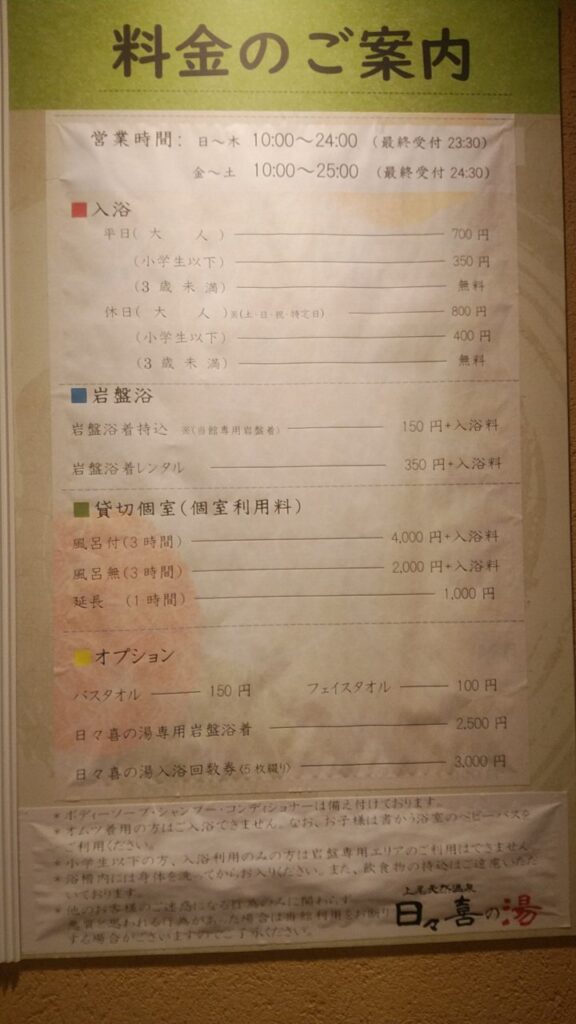 料金のご案内
営業時間: 日～木 10:00～24:00 (最終受付 23:30)
金～土 10:00～25:00 (最終受付 24:30)
入浴
平日(大人) 700円
(小学生以下) 350円
(3歳未満) 無料
休日(大人)※(土・日・祝・特定日) 800円
(小学生以下) 400円
(3歳未満) 無料
岩盤浴
岩盤浴着持込 ※(当館専用岩盤着) 150円+入浴料
岩盤浴着レンタル 350円+入浴料
貸切個室(個室利用料)
風呂付(3時間) 4,000円+入浴料
風呂無(3時間) 2,000円+入浴料
延長 (1時間) 1,000円
オプション
バスタオル 150円 フェイスタオル 100円
日々喜の湯専用岩盤浴着 2,500円
日々喜の湯入浴回数券(5枚綴り) 3,000円
*ボディーソープ・シャンプー・コンディショナーは備え付けております。
*オムツ着用の方はご入浴できません。なお、お子様は書かう浴室のベビーバスを
ご利用ください。
*小学生以下の方、入浴利用のみの方は岩盤専用エリアのご利用はできません。
*浴槽内には身体を洗ってからお入りください。また、飲食物の持込はご遠慮いただ
いております。
*他のお客様のご迷惑になる行為のみに関わらず
悪質と思われる行為があった場合は当館利用をお断り
する場合がございますのでご了承ください。
上尾天然温泉
日々喜の湯